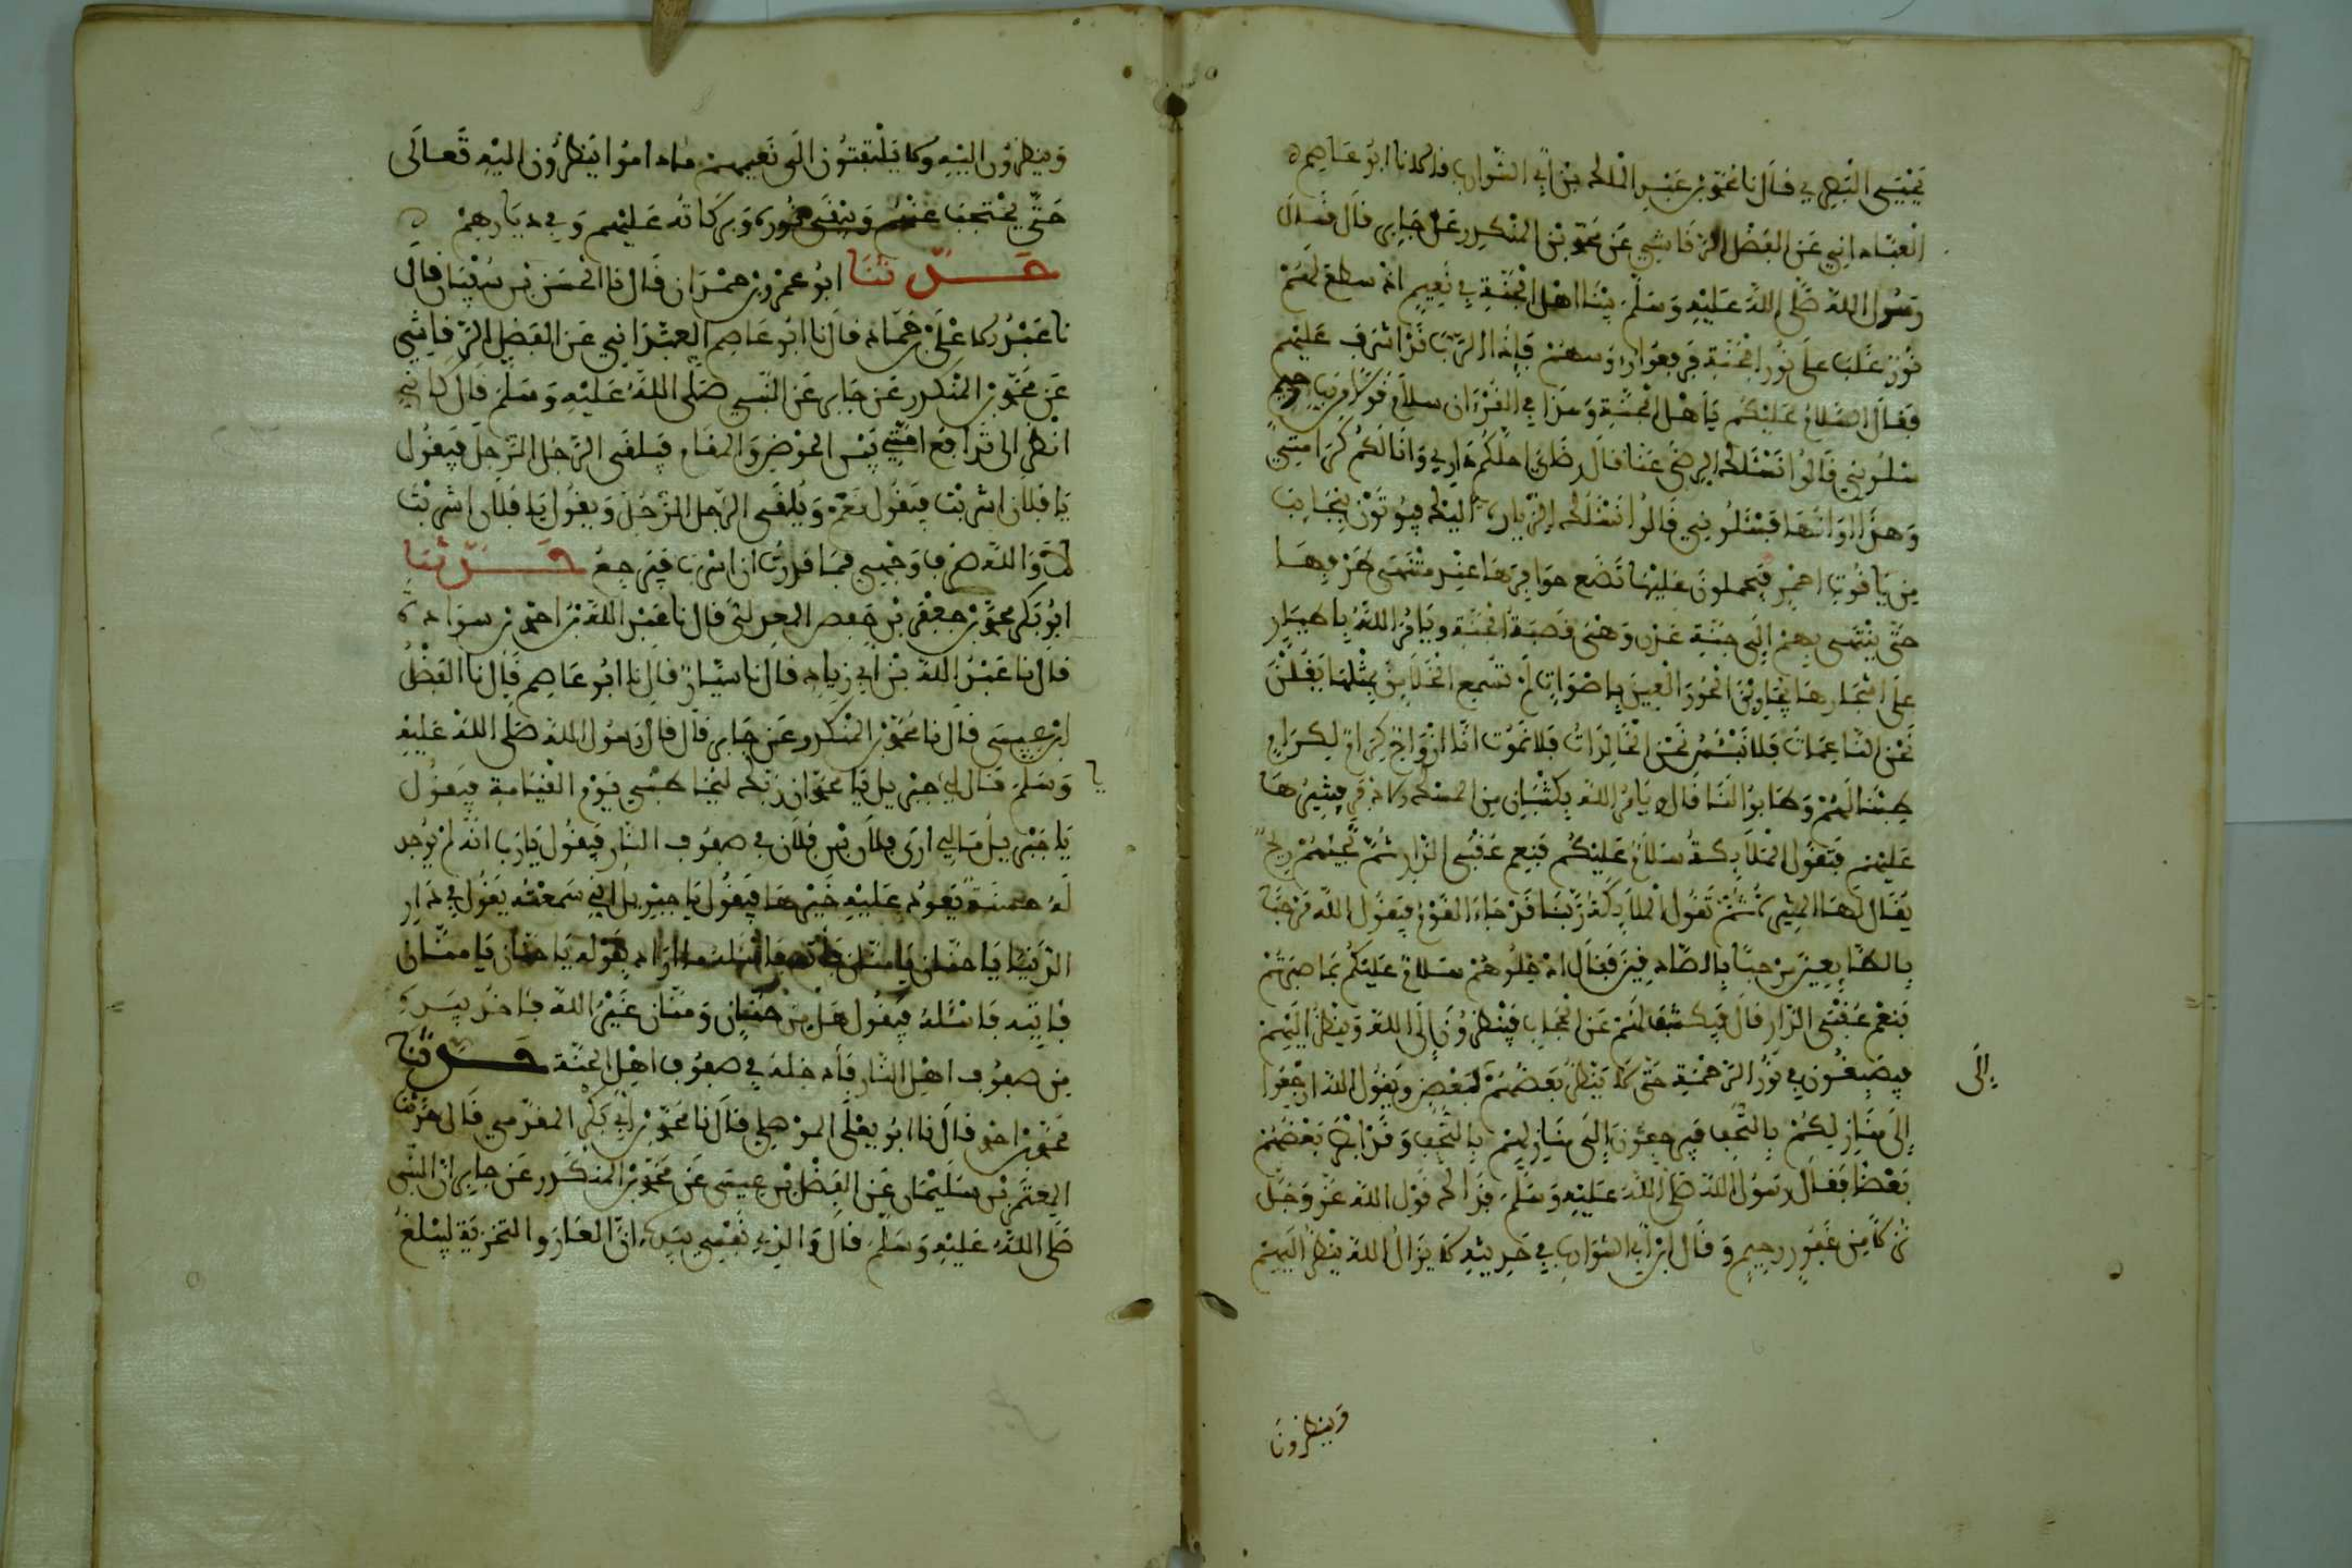 يحيى البصري قال نا محمد بن عبد الملك بن أبي الشوارب قال نا ابو عاصم
العباداني عن الفضل الرقاشي عن محمد بن المنكدر عن جابر قال قال
رسول الله صلى الله عليه وسلم بينا اهل الجنة في نعيم اذ سطع لهم
نور غلب على نور الجنة فرفعوا رءوسهم فإذا الرب قد اشرف عليهم
فقال السلام عليكم يأهل الجنة وهذا في القرءان سلام قولا من رب رحيم
سلوني قالوا نسئلك الرضى عنا قال رضاي احلكم داري وانالكم كرامتي
وهذا اوانها فسئلوني قالوا نسئلك الزيارة اليك فيؤتون بنجايب
من ياقوت احمر فيحملون عليها تضع حوافرها عند منتهى طرفها
حتى ينتهى بهم إلى جنة عدن وهي قصبة الجنة ويامر الله باطيار
على اشجارها يجاوبن الحور العين باصوات لم تسمع الخلايق بمثلها يقلن
نحن الناعمات فلا نبئس نحن الخالدات فلا نموت انا ازواج كرام لكرام
طبنا لهم وطابوا لنا قال ويامر الله بكثبان من المسك الاذفر فيثيرها
عليهم فتقول الملايكة سلام عليكم فنعم عقبى الدار ثم تجيئهم ريح
يقال لها المثيرة ثم تقول الملايكة ربنا قد جاء القوم فيقول الله مرحبا
بالطايعين مرحبا بالصادقين فقال ادخلوهم سلام عليكم بما صبرتم
فنعم عقبى الدار قال فيكشف لهم عن الحجاب فينظرون إلى الله وينظر اليهم
فيصبغون في نور الرحمة حتى لا ينظر بعضهم لبعض ويقول الله ارجعوا
إلى
إلى منازلكم بالتحف فيرجعون إلى منازلهم بالتحف وقد ابصر بعضهم
بعضا فقال رسول الله صلى الله عليه وسلم فذالك قول الله عز وجل
نزلا من غفور رحيم وقال ابن أبي الشوارب في حديثه لا يزال الله ينظر اليهم
وينظرون
وينظرون اليه ولا يلتفتون الى نعيمهم ما داموا ينظرون اليه تعالى
حتى يحتجب عنهم ويبقى نوره وبركاته عليهم وفي ديارهم
حدثنا ابو عمرو بن حمدان قال نا الحسن بن سفيان قال
نا عبد الاعلى بن حماد قال نا ابو عاصم العباداني عن الفضل الرقاشي
عن محمد بن المنكدر عن جابر عن النبي صلى الله عليه وسلم قال كاني
انظر الى تدافع امتي بين الحوض والمقام فيلقى الرجل الرجل فيقول
يا فلان اشربت فيقول نعم ويلقى الرجل الرجل ويقول يا فلان اشربت
لا والله صرف وجهي فما قدرت ان اشرب فيرجع حدثنا
ابو بكر محمد بن جعفر بن حفص المعدل قال نا عبد الله بن احمد بن سوادة
قال نا عبد الله بن أبي زياد قال نا سيار قال نا ابو عاصم قال نا الفضل
ابن عيسى قال نا محمد بن المنكدر عن جابر قال قال رسول الله صلى الله عليه
وسلم قال لي جبريل يا محمد ان ربك ليخاطبني يوم القيامة فيقول
يا جبريل مالي ارى فلان بن فلان في صفوف النار فيقول يا رب انه لم يوجد
له حسنة يعود عليه خيرها فيقول يا جبريل اني سمعته يقول في دار
الدنيا يا حنان يا منان فأته فاسئله ما اراد بقوله يا حنان يا منان
فاتيه فاسئله فيقول هل من حنان ومنان غير الله فاخذ بيده
من صفوف اهل النار فأدخله في صفوف اهل الجنة حدثنا
محمد بن احمد قال نا ابو يعلى الموصلي قال نا محمد بن أبي بكر المقدمي قال حدثنا
المعتمر بن سليمان عن الفضل بن عيسى عن محمد بن المنكدر عن جابر ان النبي
صلى الله عليه وسلم قال والذي نفسي بيده ان العار والتخزية ليبلغ